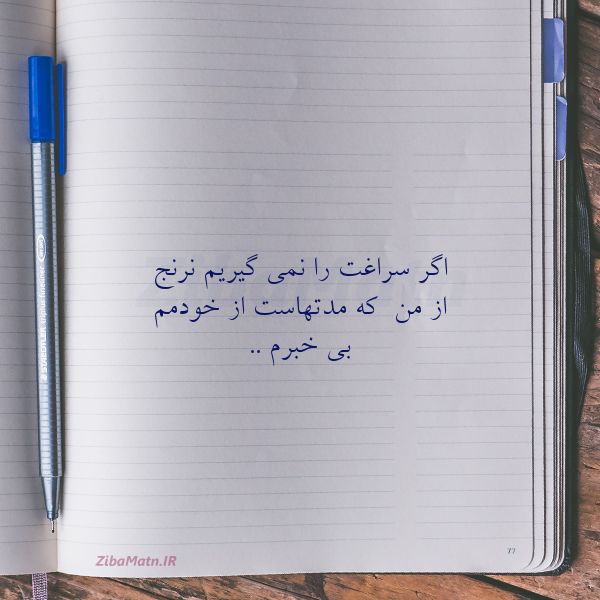 اگر سراغت را نمی گیریم نرنج
از من که مدتهاست از خودمم
بی خبرم ..
STAEDTLER triplus fineliner
77
ZibaMatn.IR